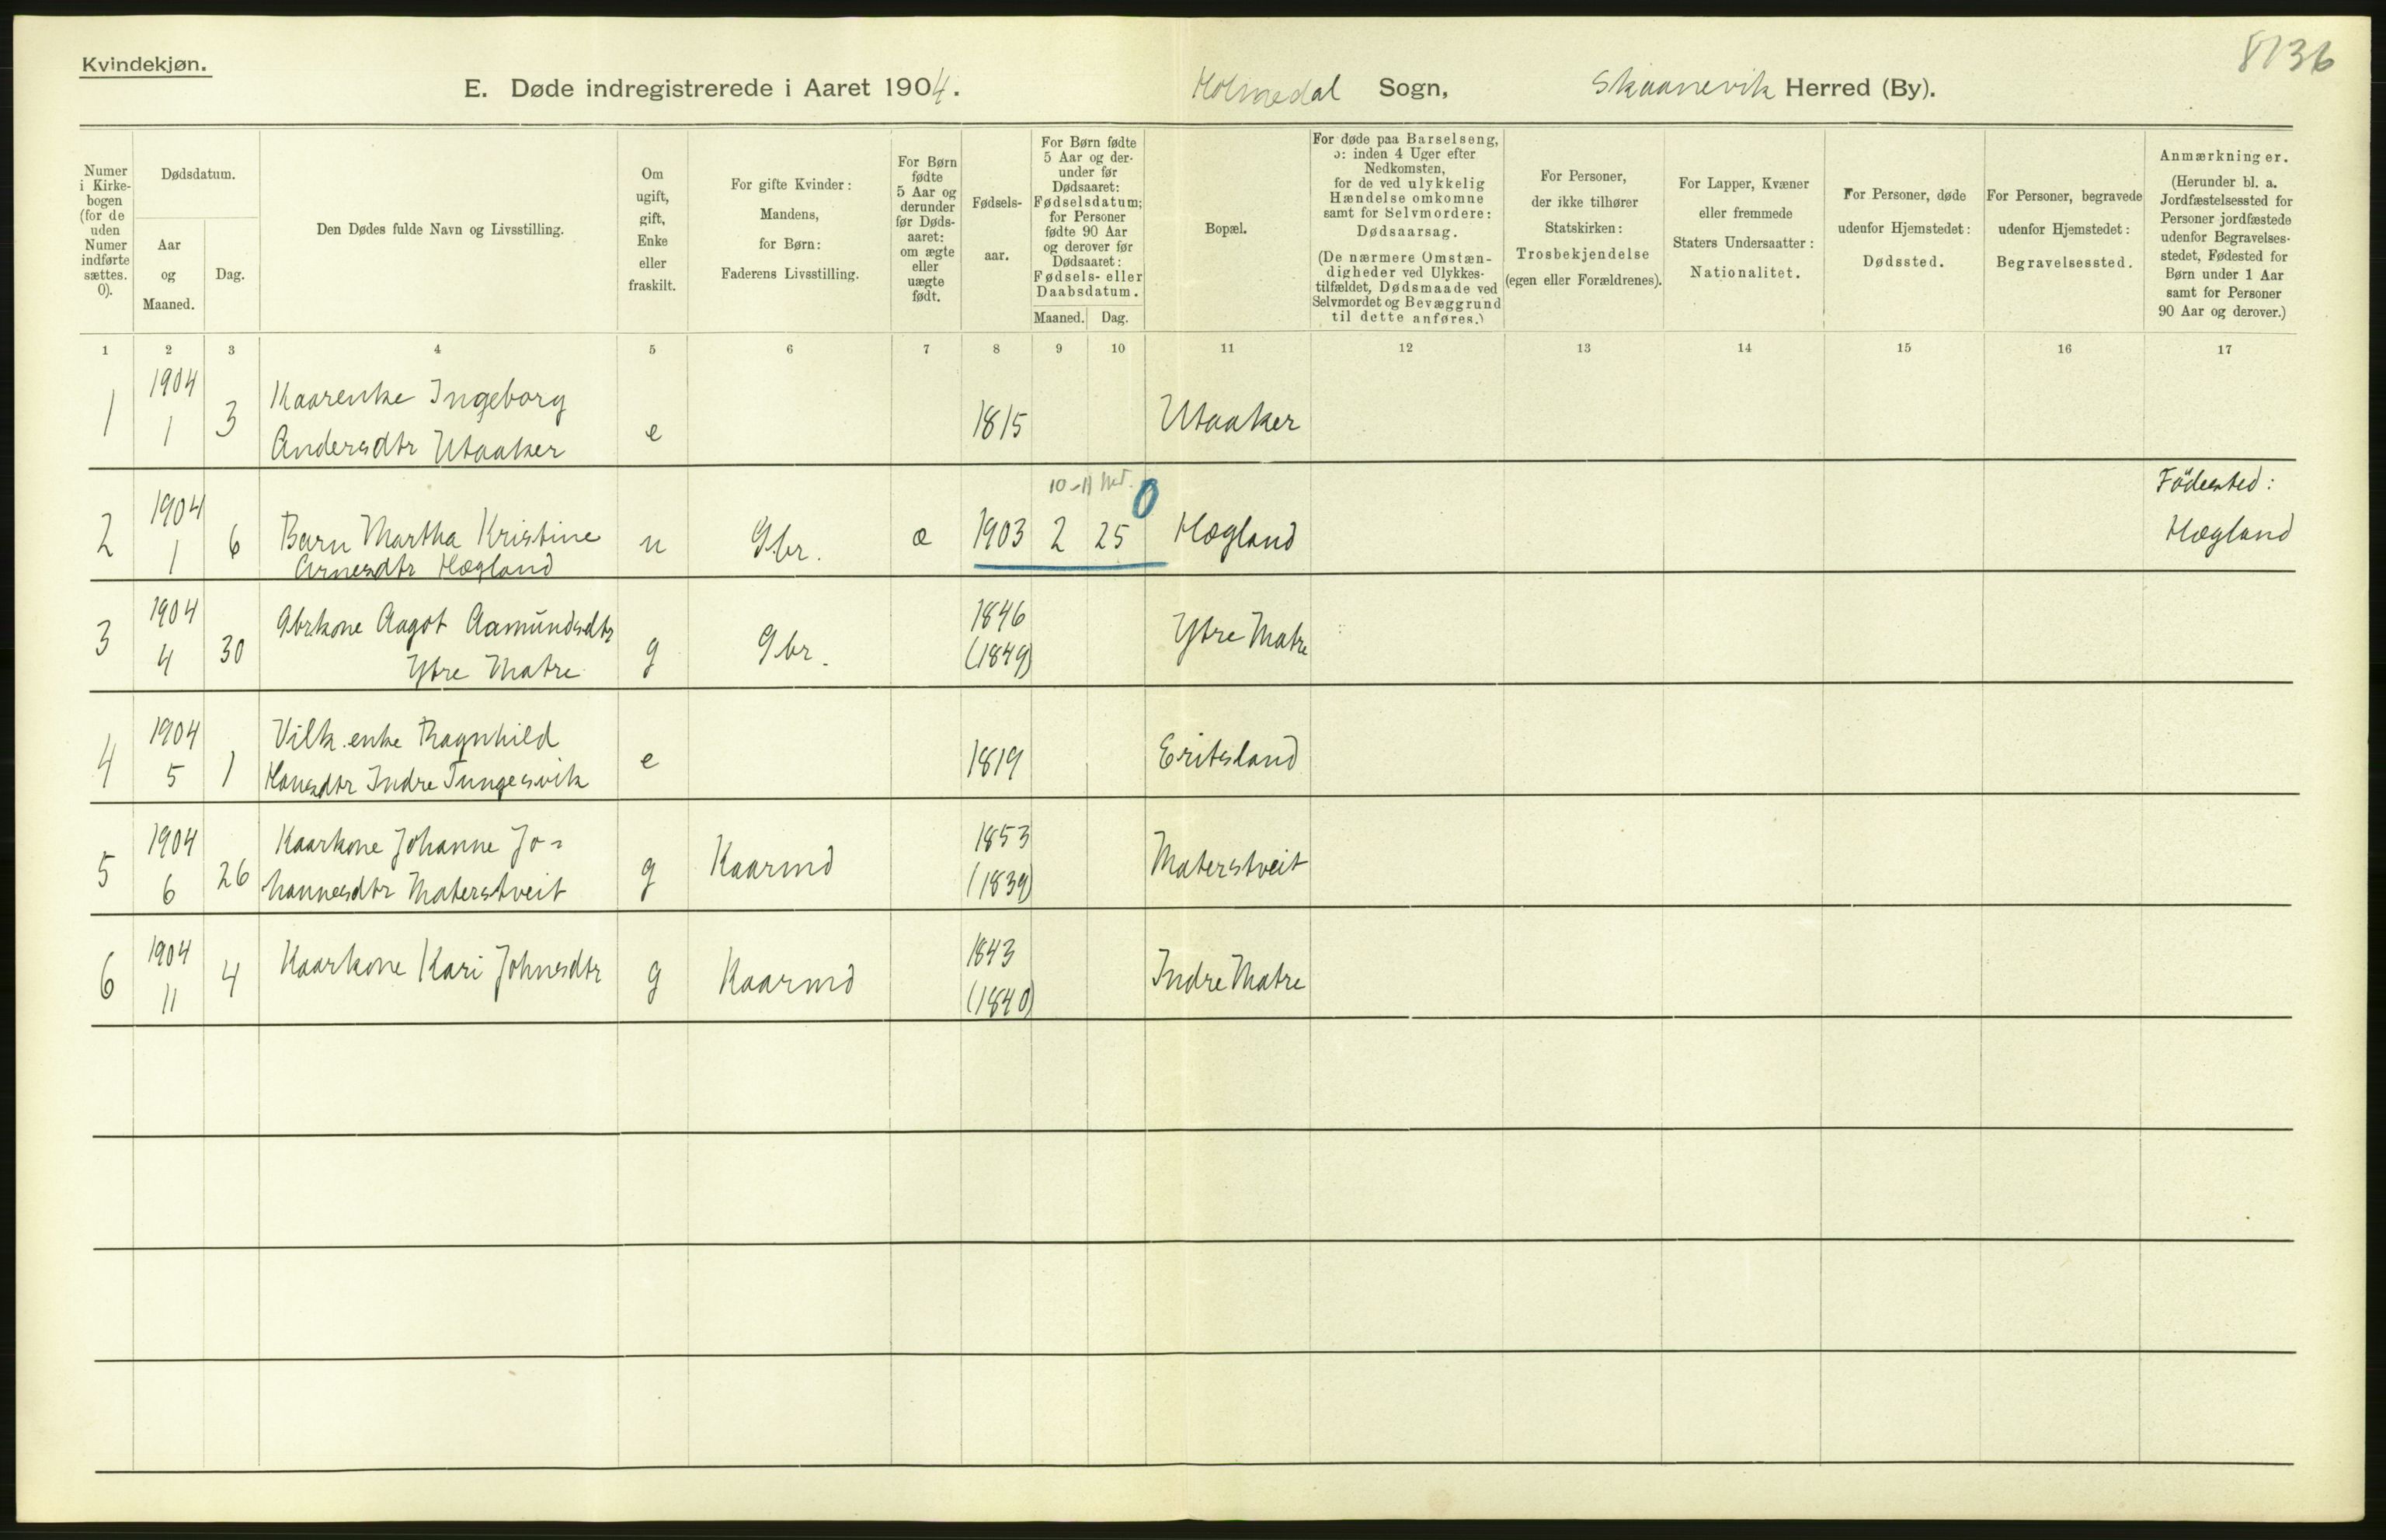 Kvindekjøn.
8136
E. Døde indregistrerede i Aaret 1904.
Holmedal Sogn,
Skaanevik Herred (By).
Numer i Kirke-bogen (for de uden Numer indførte sættes. 0).
Dødsdatum.
Aar og Maaned.
Dag.
Den Dødes fulde Navn og Livsstilling.
Om ugift, gift, Enke eller fraskilt.
For gifte Kvinder: Mandens, for Børn: Faderens Livsstilling.
For Børn fødte 5 Aar og derunder før Døds-aaret: om ægte eller uægte født.
Fødsels-aar.
For Børn fødte 5 Aar og der-under før Dødsaaret: Fødselsdatum; for Personer fødte 90 Aar og derover før Dødsaaret: Fødsels- eller Daabsdatum.
Maaned. Dag.
Bopæl.
For døde paa Barselseng, ɔ: inden 4 Uger efter Nedkomsten, for de ved ulykkelig Hændelse omkomne samt for Selvmordere: Dødsaarsag.
(De nærmere Omstæn-digheder ved Ulykkes-tilfældet, Dødsmaade ved Selvmordet og Bevæggrund til dette anføres.)
For Personer, der ikke tilhører Statskirken: Trosbekjendelse (egen eller Forældrenes).
For Lapper, Kvæner eller fremmede Staters Undersaatter: Nationalitet.
For Personer, døde udenfor Hjemstedet: Dødssted.
For Personer, begravede udenfor Hjemstedet: Begravelsessted.
Anmærkninger.
(Herunder bl. a. Jordfæstelsessted for Personer jordfæstede udenfor Begravelses-stedet, Fødested for Børn under 1 Aar samt for Personer 90 Aar og derover.)
1 2 3 4 5 6 7 8 9 10 11 12 13 14 15 16 17
1 1904 1 3 Kaarenke Ingeborg
Andersdtr Utaaker e 1815 Utaaker
10-11 Md. 0
2 1904 1 6 Barn Martha Kristine
Arnesdtr Høgland u Gbr. æ 1903 2 25 Høgland Födested:
Høgland
3 1904 4 30 Gbrkone Aagot Aamundsdtr
Ytre Matre g Gbr. 1846
(1849) Ytre Matre
4 1904 5 1 Vilk. enke Ragnhild
Hansdtr Indre Tungesvik e 1819 Eritsland
5 1904 6 26 Kaarkone Johanne Jo-
hannesdtr Materstveit g Kaarmd 1853
(1839) Materstveit
6 1904 11 4 Kaarkone Kari Johnsdtr g Kaarmd 1843
(1840) Indre Matre